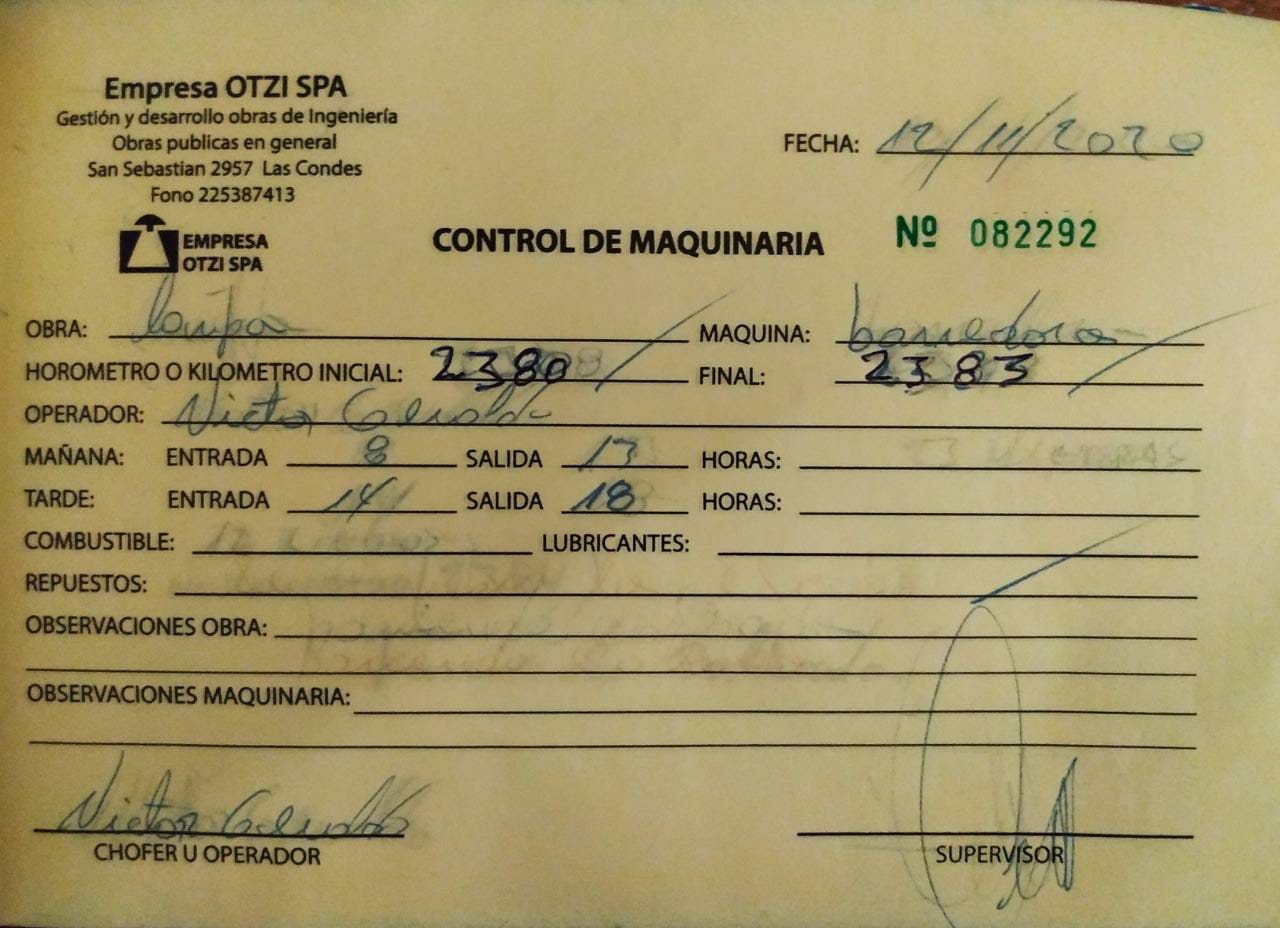 Empresa OTZI SPA
Gestión y desarrollo obras de Ingeniería
Obras publicas en general
San Sebastian 2957 Las Condes
Fono 225387413
FECHA: 12/11/2020
EMPRESA
OTZI SPA
CONTROL DE MAQUINARIA Nº 082292
OBRA: lampa MAQUINA: barredora
HOROMETRO O KILOMETRO INICIAL: 2380 FINAL: 2383
OPERADOR: Victor
MAÑANA: ENTRADA 8 SALIDA 13 HORAS:
TARDE: ENTRADA 14 SALIDA 18 HORAS:
COMBUSTIBLE: LUBRICANTES:
REPUESTOS:
OBSERVACIONES OBRA:
OBSERVACIONES MAQUINARIA:
Victor
CHOFER U OPERADOR SUPERVISOR